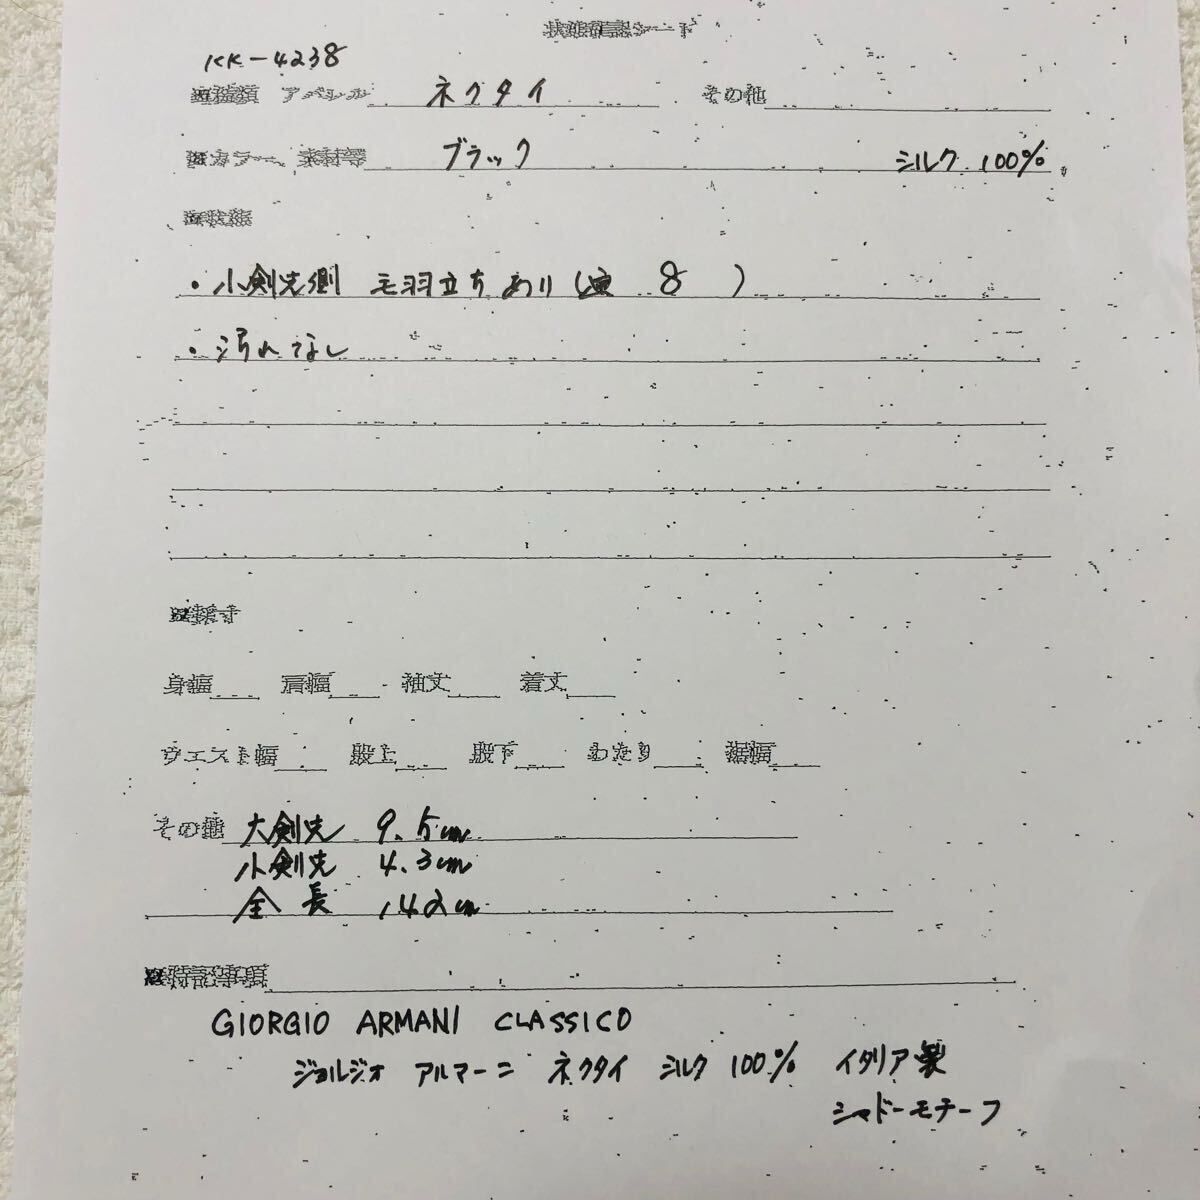 状態確認シート
KK-4238
※種類 アパレル ネクタイ その他
※カラー、素材等 ブラック シルク 100%
※状態
・小剣先側 毛羽立ちあり( 8 )
・汚れなし
※採寸
身幅 肩幅 袖丈 着丈
ウエスト幅 股上 股下 わたり 裾幅
その他 大剣先 9.5cm
小剣先 4.3cm
全長 142cm
※特記事項
GIORGIO ARMANI CLASSICO
ジョルジオ アルマーニ ネクタイ シルク 100% イタリア製
シャドーモチーフ